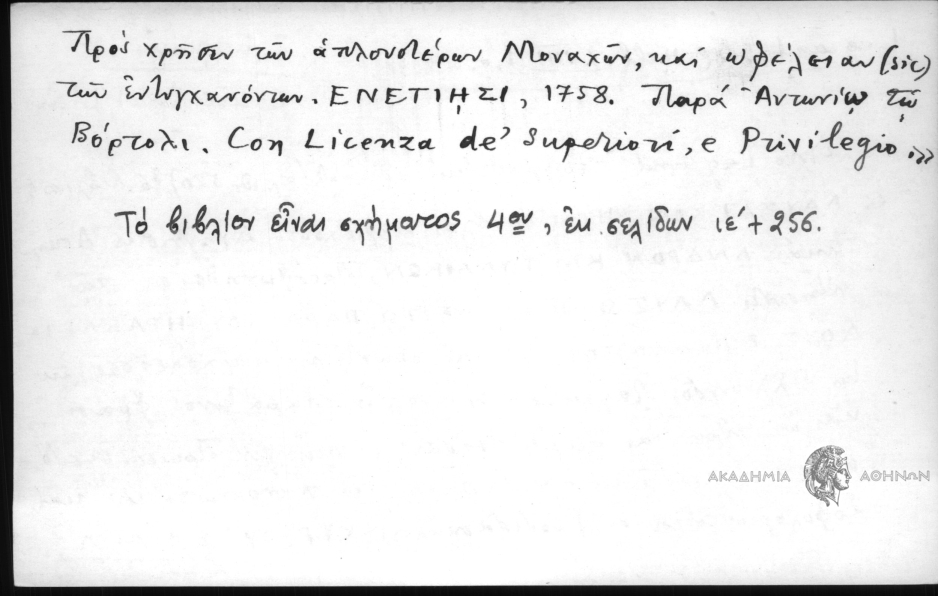 Πρός χρῆσιν τῶν ἁπλουστέρων Μοναχῶν, καί ὠφέλειαν (sic)
τῶν ἐντυγχανόντων. ΕΝΕΤΙῌΣΙ, 1758. Παρά Ἀντωνίῳ τῷ
Βόρτολι. Con Licenza de' Superiori, e Privilegio.»
Τό βιβλίον εἶναι σχήματος 4ου, ἐκ σελίδων ιε' + 256.
ΑΚΑΔΗΜΙΑ ΑΘΗΝΩΝ